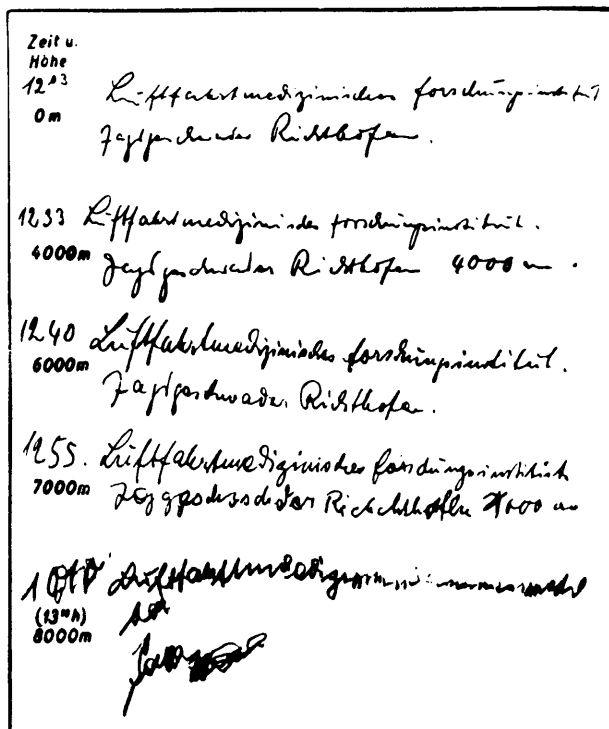 Zeit u.
Höhe
12⁰³ Luftfahrtmedizinisches Forschungsinstitut
0m Jagdgeschwader Richthofen.
1233 Luftfahrtmedizinisches Forschungsinstitut.
4000m Jagdgeschwader Richthofen 4000 m.
1240 Luftfahrtmedizinisches Forschungsinstitut.
6000m Jagdgeschwader Richthofen.
1255. Luftfahrtmedizinisches Forschungsinstitut
7000m 7000 m
(13⁰⁰h)
8000m